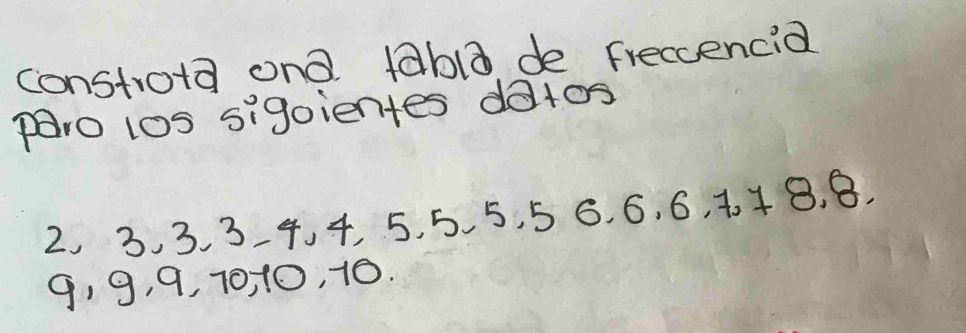 Constrota ona tabla de freccencia
paro los sigoientes datos
2, 3, 3, 3, 4, 4, 5, 5, 5, 5 6, 6, 6, 7, 7 8, 8,
9, 9, 9, 10, 10, 10.